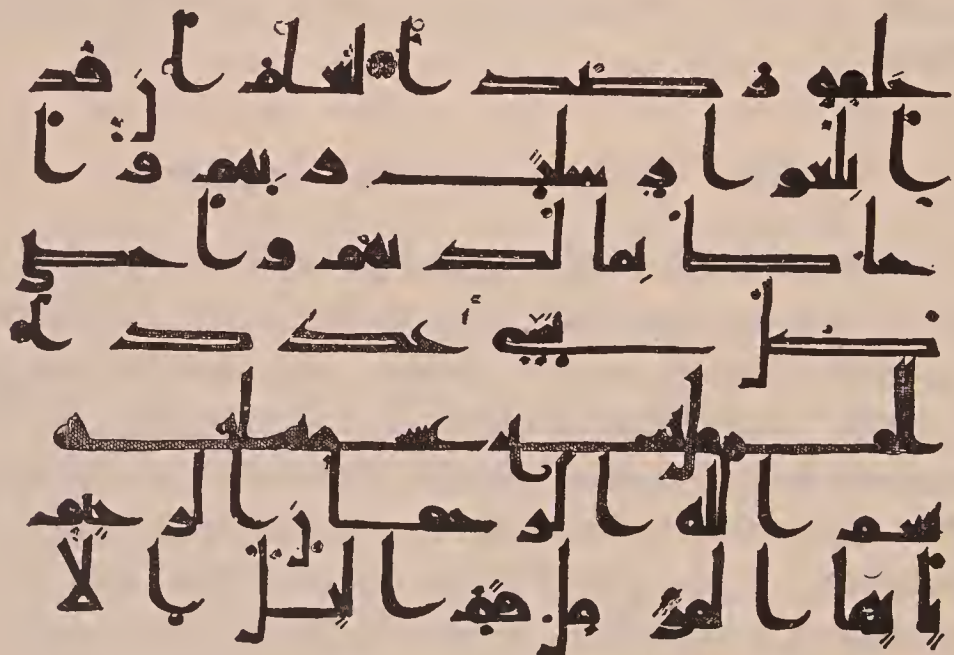 خلفه رصدا ليعلم ان قد
ابلغوا رسلت ربهم و ا
حاط بما لديهم و احصى
كل شى عددا
بسم الله الرحمن الرحيم
يايها المزمل قم اليل الا